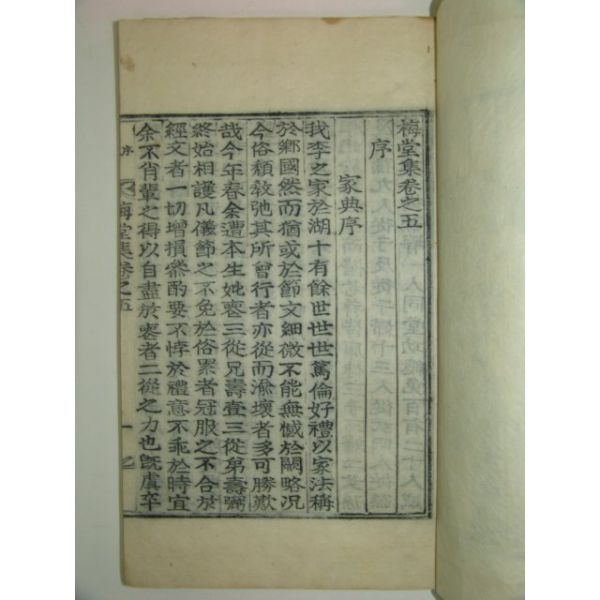 梅堂集卷之五
序
家典序
我李之家於湖十有餘世世世篤倫好禮以家法稱
於鄉國然而猶或於節文細微不能無憾於闕略況
今俗頹敎弛其所曾行者亦從而渝壞者多可勝歎
哉今年春余遭本生妣喪三從兄壽壹三從弟壽弼
終始相護凡儀節之不免於俗累者冠服之不合於
經文者一切增損叅酌要不悖於禮意不乖於時宜
余不肖輩之得以自盡於喪者二從之力也旣虞卒
序
梅堂集卷之五
一